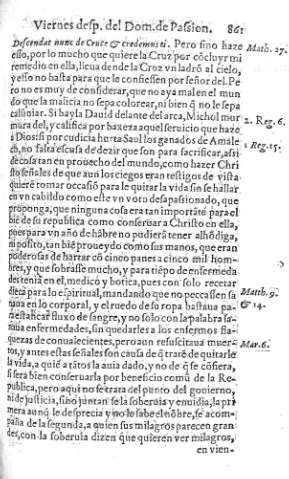 Viernes desp. del Dom. de Passion. 861
Descendat nunc de Cruce & credemus ei. Pero sino haze
esso, por lo mucho que quiere la Cruz por cõcluyr mi
remedio en ella, lleua dende la Cruz vn ladrõ al cielo,
y esso no basta para que le confiessen por señor del. Pe
ro no es muy de considerar, que no aya mal en el mun
do que la malicia no sepa colorear, ni bien q̃ no le sepa
calũniar. Si bayla Dauid delante del arca, Michol mur
mura del, y califica por baxeza aquel seruicio que haze
a Dios: si por cudicia hurta Saul los ganados de Amale
ch, no falta escusa de dezir que son para sacrificar, assi
de cosa tan en prouecho del mundo, como hazer Chri
sto señales de que aun los ciegos eran testigos de vista
quierē tomar ocassiõ para le quitar la vida sin se hallar
en vn cabildo como este vn voto desapassionado, que
proponga, que ninguna cosa era tan importãte para el
biē de su republica como conseruar a Christo en ella,
pues para vn año de hãbre no pudierã tener alhõdiga,
ni posito, tan biē proueydo como sus manos, que eran
poderosas de hartar cõ cinco panes a cinco mil hom-
bres, y que sobrasse mucho, y para tiēpo de enfermeda
des teniã en el, medico y botica, pues con solo recetar
dieta para lo espiritual, mandando que no peccassen sa
naua en lo corporal, y el ruedo de su ropa bastaua pa-
ra estancar fluxo de sangre, y no solo con la palabra sa-
naua enfermedades, sin quedarles a los enfermos fla-
quezas de conualecientes, pero aun resuscitaua muer-
tos, y antes estas señales son causa de q̃ tratē de quitarle
la vida, a quiē a tãtos la auia dado, y no de q̃ se cõfiera,
si sera bien conseruarla por beneficio comũ de la Re-
publica, pero aqui no se trata del punto del gouierno,
ni de justicia, sino juntan se la soberuia y enuidia, la pri
mera aunq̃ le desprecia y no lo sabe el nõbre, se acom-
paña de la segunda, a quien sus milagros parecen gran
des, con la soberuia dizen q̃ quieren ver milagros,
en vien-
Math. 27.
2. Reg. 6.
1. Reg. 15.
Matth. 9.
& 14.
Mar. 6.